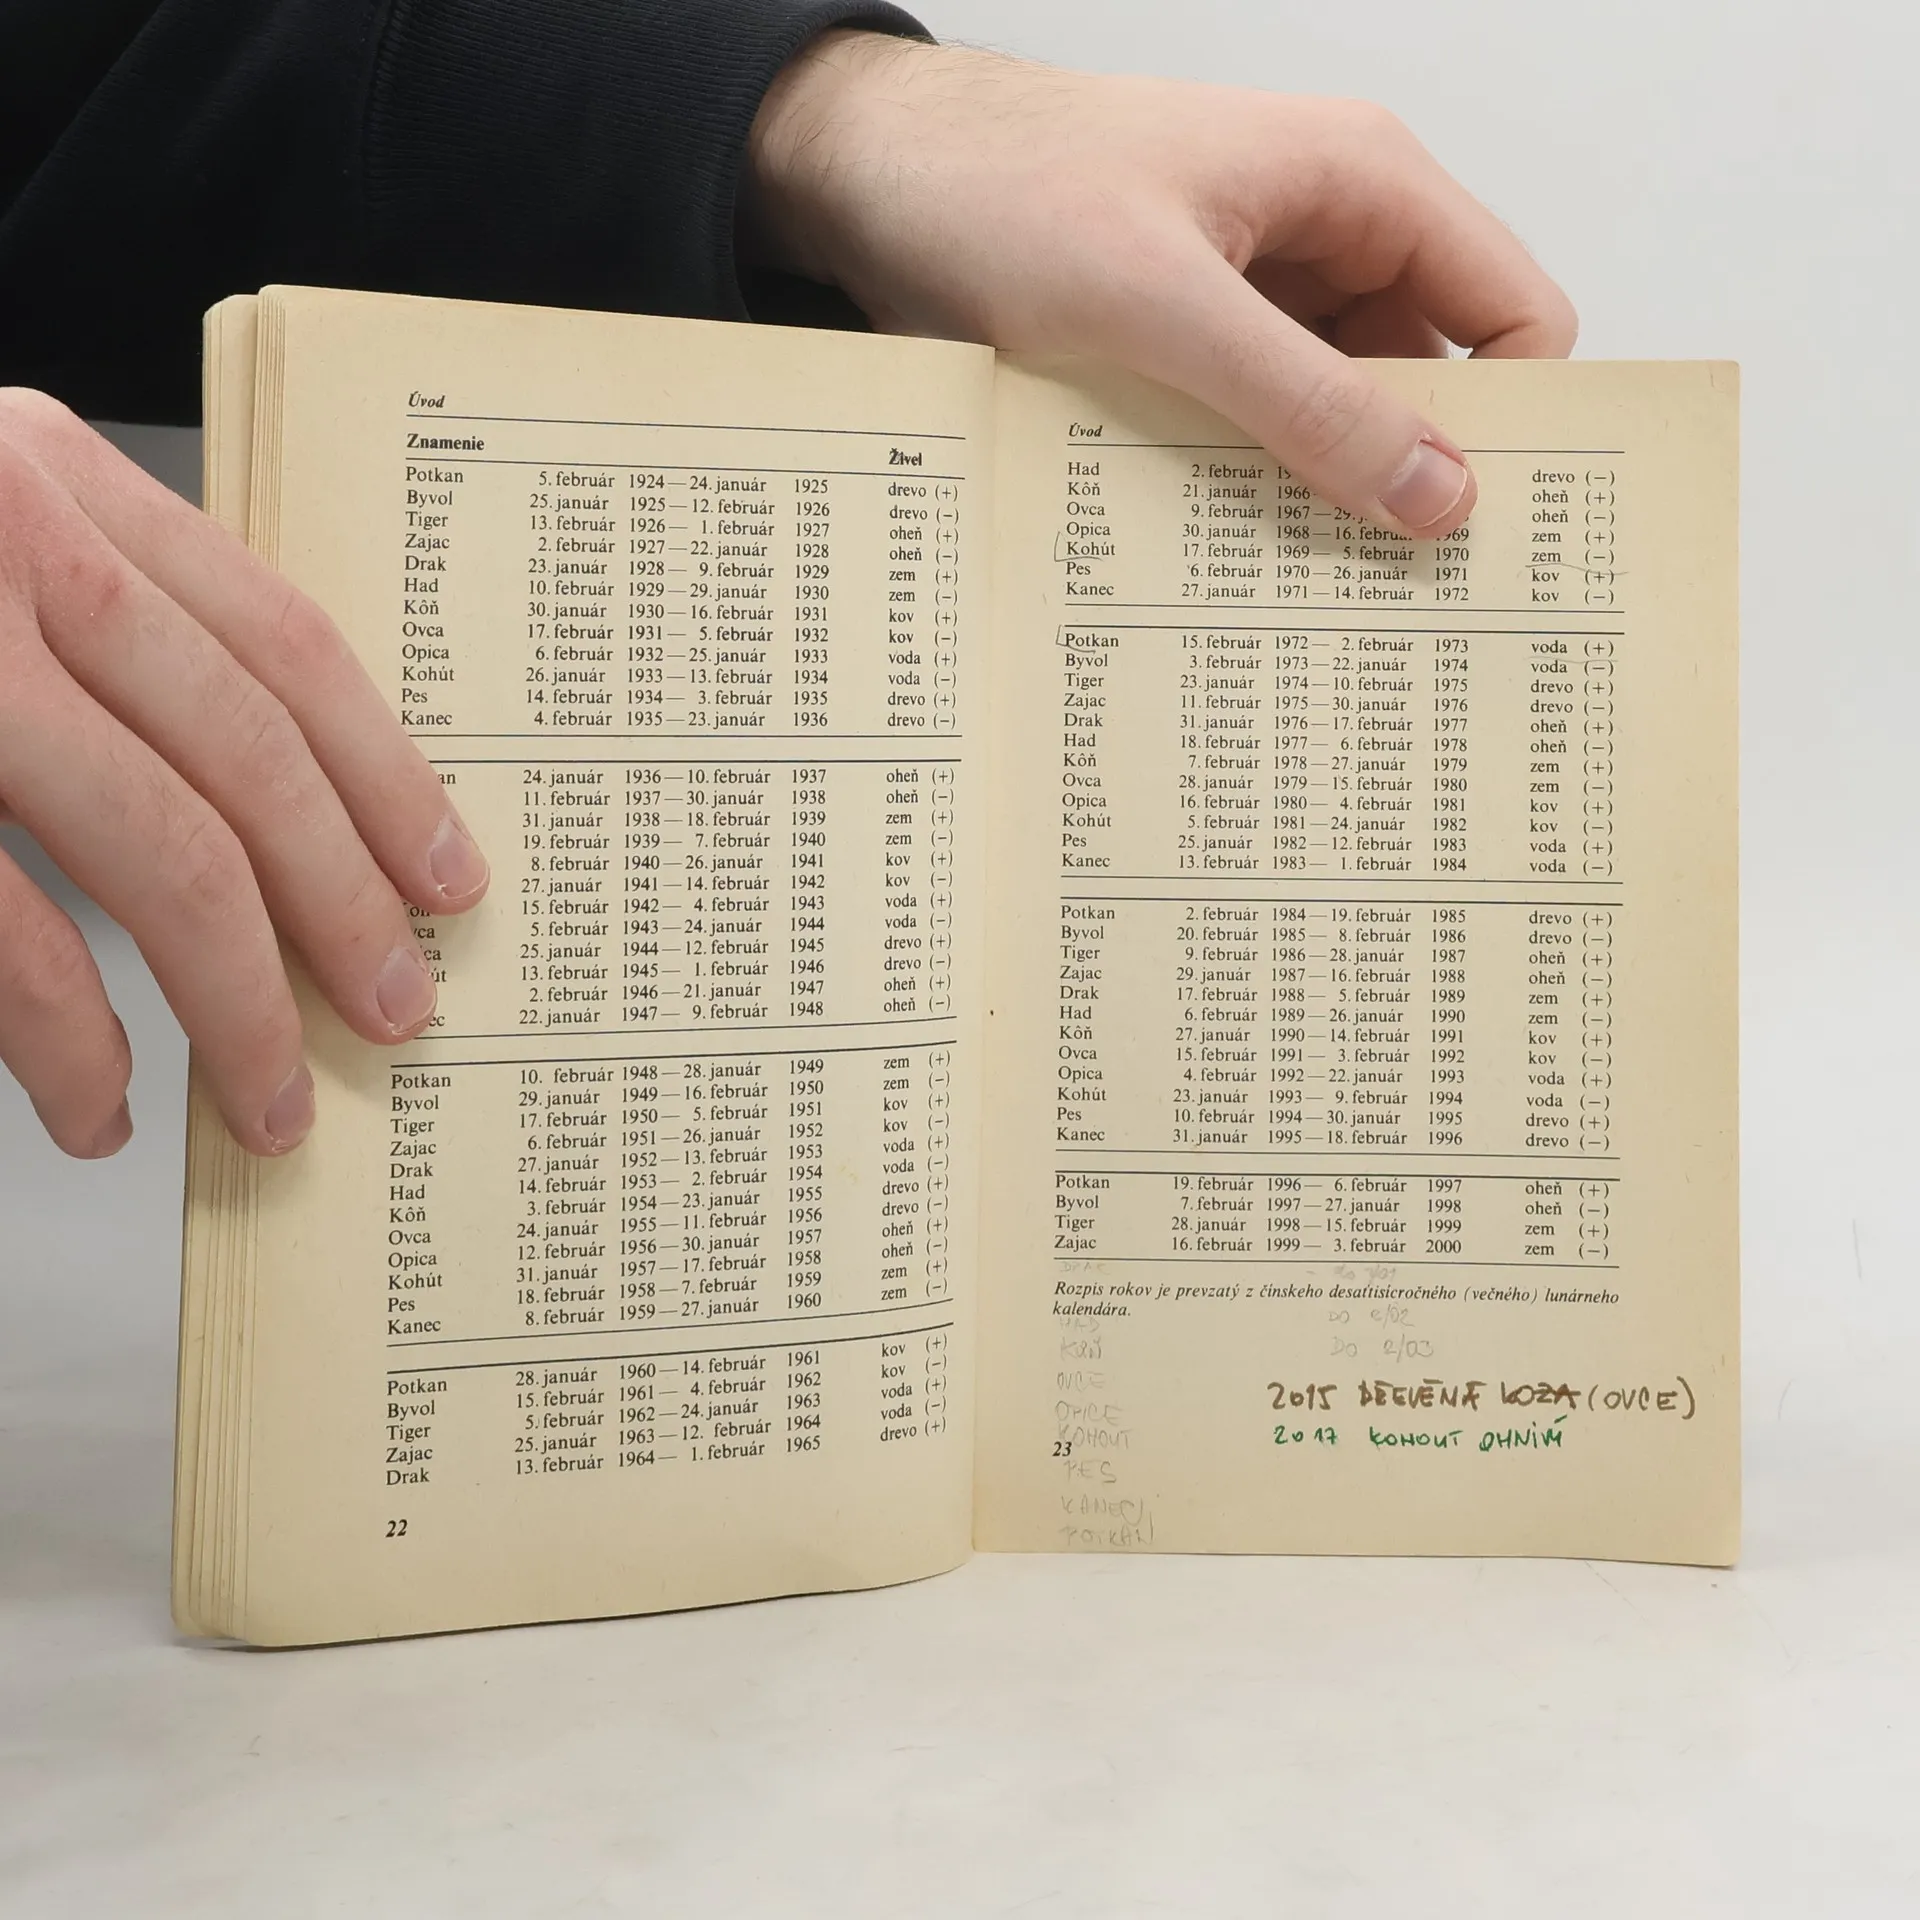 Úvod
Znamenie Živel
Potkan 5. február 1924 — 24. január 1925 drevo (+)
Byvol 25. január 1925 — 12. február 1926 drevo (−)
Tiger 13. február 1926 — 1. február 1927 oheň (+)
Zajac 2. február 1927 — 22. január 1928 oheň (−)
Drak 23. január 1928 — 9. február 1929 zem (+)
Had 10. február 1929 — 29. január 1930 zem (−)
Kôň 30. január 1930 — 16. február 1931 kov (+)
Ovca 17. február 1931 — 5. február 1932 kov (−)
Opica 6. február 1932 — 25. január 1933 voda (+)
Kohút 26. január 1933 — 13. február 1934 voda (−)
Pes 14. február 1934 — 3. február 1935 drevo (+)
Kanec 4. február 1935 — 23. január 1936 drevo (−)
24. január 1936 — 10. február 1937 oheň (+)
11. február 1937 — 30. január 1938 oheň (−)
31. január 1938 — 18. február 1939 zem (+)
19. február 1939 — 7. február 1940 zem (−)
8. február 1940 — 26. január 1941 kov (+)
27. január 1941 — 14. február 1942 kov (−)
15. február 1942 — 4. február 1943 voda (+)
5. február 1943 — 24. január 1944 voda (−)
25. január 1944 — 12. február 1945 drevo (+)
13. február 1945 — 1. február 1946 drevo (−)
2. február 1946 — 21. január 1947 oheň (+)
22. január 1947 — 9. február 1948 oheň (−)
Potkan 10. február 1948 — 28. január 1949 zem (+)
Byvol 29. január 1949 — 16. február 1950 zem (−)
Tiger 17. február 1950 — 5. február 1951 kov (+)
Zajac 6. február 1951 — 26. január 1952 kov (−)
Drak 27. január 1952 — 13. február 1953 voda (+)
Had 14. február 1953 — 2. február 1954 voda (−)
Kôň 3. február 1954 — 23. január 1955 drevo (+)
Ovca 24. január 1955 — 11. február 1956 drevo (−)
Opica 12. február 1956 — 30. január 1957 oheň (+)
Kohút 31. január 1957 — 17. február 1958 oheň (−)
Pes 18. február 1958 — 7. február 1959 zem (+)
Kanec 8. február 1959 — 27. január 1960 zem (−)
Potkan 28. január 1960 — 14. február 1961 kov (+)
Byvol 15. február 1961 — 4. február 1962 kov (−)
Tiger 5. február 1962 — 24. január 1963 voda (+)
Zajac 25. január 1963 — 12. február 1964 voda (−)
Drak 13. február 1964 — 1. február 1965 drevo (+)
22
Úvod
Had 2. február drevo (−)
Kôň 21. január 1966 oheň (+)
Ovca 9. február 1967 — 29. oheň (−)
Opica 30. január 1968 — 16. zem (+)
Kohút 17. február 1969 — 5. február 1970 zem (−)
Pes 6. február 1970 — 26. január 1971 kov (+)
Kanec 27. január 1971 — 14. február 1972 kov (−)
Potkan 15. február 1972 — 2. február 1973 voda (+)
Byvol 3. február 1973 — 22. január 1974 voda (−)
Tiger 23. január 1974 — 10. február 1975 drevo (+)
Zajac 11. február 1975 — 30. január 1976 drevo (−)
Drak 31. január 1976 — 17. február 1977 oheň (+)
Had 18. február 1977 — 6. február 1978 oheň (−)
Kôň 7. február 1978 — 27. január 1979 zem (+)
Ovca 28. január 1979 — 15. február 1980 zem (−)
Opica 16. február 1980 — 4. február 1981 kov (+)
Kohút 5. február 1981 — 24. január 1982 kov (−)
Pes 25. január 1982 — 12. február 1983 voda (+)
Kanec 13. február 1983 — 1. február 1984 voda (−)
Potkan 2. február 1984 — 19. február 1985 drevo (+)
Byvol 20. február 1985 — 8. február 1986 drevo (−)
Tiger 9. február 1986 — 28. január 1987 oheň (+)
Zajac 29. január 1987 — 16. február 1988 oheň (−)
Drak 17. február 1988 — 5. február 1989 zem (+)
Had 6. február 1989 — 26. január 1990 zem (−)
Kôň 27. január 1990 — 14. február 1991 kov (+)
Ovca 15. február 1991 — 3. február 1992 kov (−)
Opica 4. február 1992 — 22. január 1993 voda (+)
Kohút 23. január 1993 — 9. február 1994 voda (−)
Pes 10. február 1994 — 30. január 1995 drevo (+)
Kanec 31. január 1995 — 18. február 1996 drevo (−)
Potkan 19. február 1996 — 6. február 1997 oheň (+)
Byvol 7. február 1997 — 27. január 1998 oheň (−)
Tiger 28. január 1998 — 15. február 1999 zem (+)
Zajac 16. február 1999 — 3. február 2000 zem (−)
Rozpis rokov je prevzatý z čínskeho desaťtisícročného (večného) lunárneho
kalendára.
HAD DO 2/02
KŮŇ DO 2/03
OVCE
2015 DŘEVĚNÁ KOZA (OVCE)
OPICE
KOHOUT
2017 KOHOUT OHNIVÝ
23
PES
KANEC
POTKAN